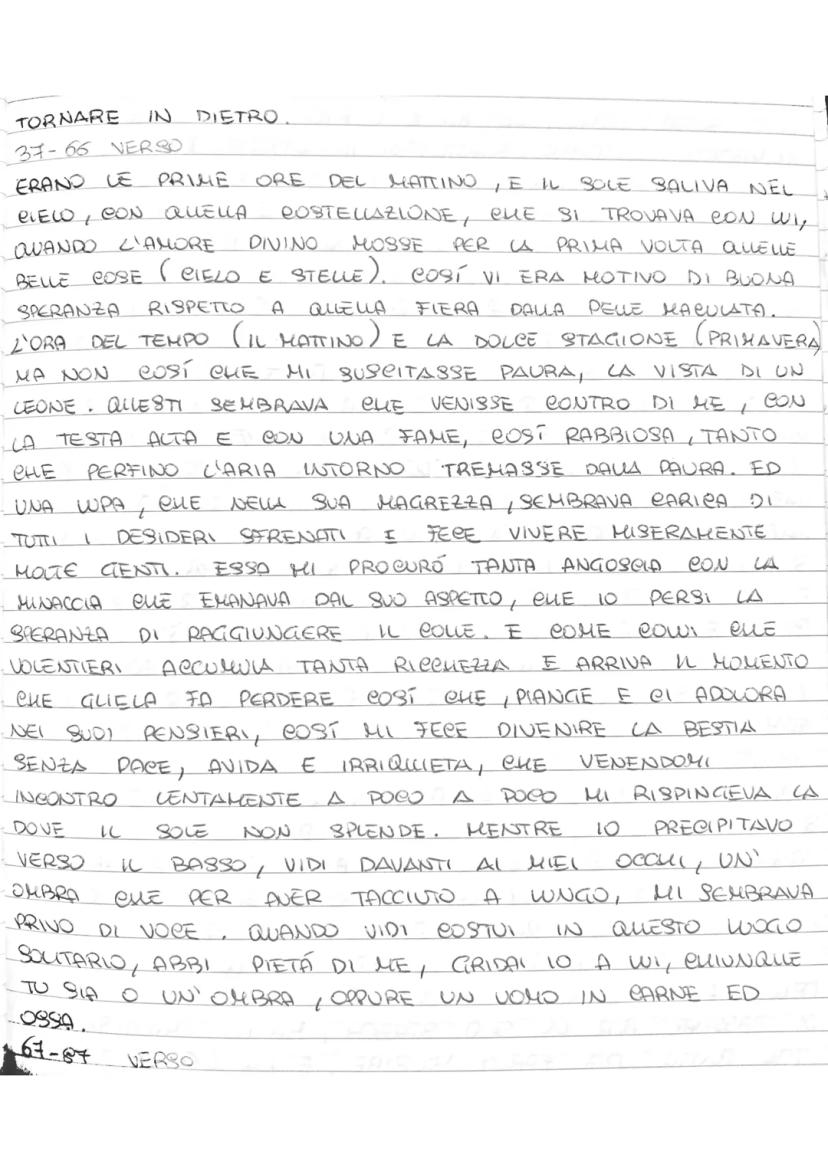 TORNARE IN DIETRO.
37-66 VERSO
ERANO LE PRIME ORE DEL MATTINO, E IL SOLE SALIVA NEL
CIELO, CON QUELLA COSTELLAZIONE, CHE SI TROVAVA CON LUI,
QUANDO L'AMORE DIVINO MOSSE PER LA PRIMA VOLTA QUELLE
BELLE COSE (CIELO E STELLE). COSÍ VI ERA MOTIVO DI BUONA
SPERANZA RISPETTO A QUELLA FIERA DALLA PELLE MACULATA.
L'ORA DEL TEMPO (IL MATTINO) E LA DOLCE STAGIONE (PRIMAVERA)
MA NON COSÍ CHE MI SUSCITASSE PAURA, LA VISTA DI UN
LEONE. QUESTI SEMBRAVA CHE VENISSE CONTRO DI ME, CON
LA TESTA ALTA E CON UNA FAME, COSÍ RABBIOSA, TANTO
CHE PERFINO L'ARIA INTORNO TREMASSE DALLA PAURA. ED
UNA LUPA, CHE NELLA SUA MAGREZZA, SEMBRAVA CARICA DI
TUTTI I DESIDERI SFRENATI E FECE VIVERE MISERAMENTE
MOLTE GENTI. ESSA MI PROCURÓ TANTA ANGOSCIA CON LA
MINACCIA CHE EMANAVA DAL SUO ASPETTO, CHE IO PERSI LA
SPERANZA DI RAGGIUNGERE IL COLLE. E COME COLUI CHE
VOLENTIERI ACCUMULA TANTA RICCHEZZA E ARRIVA IL MOMENTO
CHE GLIELA FA PERDERE COSÍ CHE, PIANGE E CI ADOLORA
NEI SUOI PENSIERI, COSÍ MI FECE DIVENIRE LA BESTIA
SENZA PACE, AVIDA E IRRIQUIETA, CHE VENENDOMI
INCONTRO LENTAMENTE A POCO A POCO MI RISPINGEVA LA
DOVE IL SOLE NON SPLENDE. MENTRE IO PRECIPITAVO
VERSO IL BASSO, VIDI DAVANTI AI MIEI OCCHI, UN'
OMBRA CHE PER AVER TACCIUTO A LUNGO, MI SEMBRAVA
PRIVO DI VOCE. QUANDO VIDI COSTUI IN QUESTO LUOGO
SOLITARIO, ABBI PIETÁ DI ME, GRIDAI IO A LUI, CHIUNQUE
TU SIA O UN'OMBRA, OPPURE UN UOMO IN CARNE ED
OSSA.
67-87 VERSO